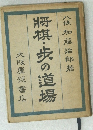 八段加藤治郎著
将棋・歩の道場
大阪屋號書店